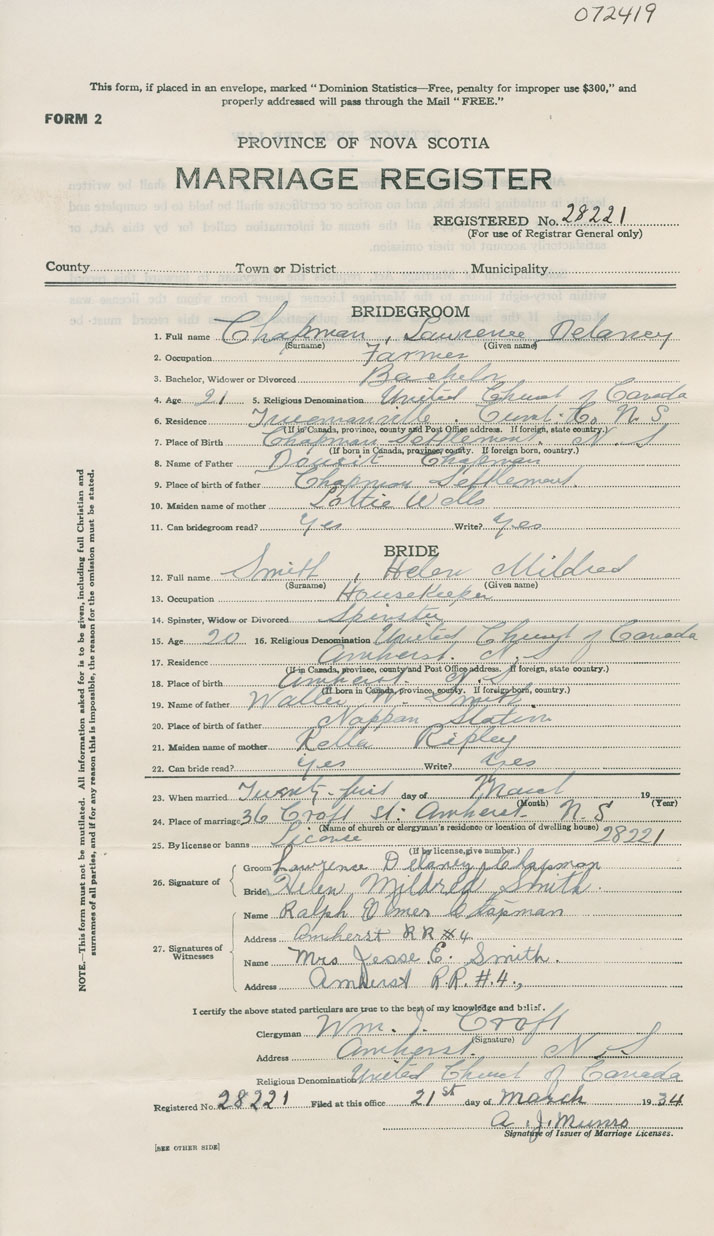 072419
This form, if placed in an envelope, marked "Dominion Statistics—Free, penalty for improper use $300," and
properly addressed will pass through the Mail "FREE."
FORM 2
PROVINCE OF NOVA SCOTIA
MARRIAGE REGISTER
REGISTERED No. 28221
(For use of Registrar General only)
County Town or District Municipality
BRIDEGROOM
1. Full name Chapman, Lawrence Delaney
(Surname) (Given name)
2. Occupation Farmer
3. Bachelor, Widower or Divorced Bachelor
4. Age 21 5. Religious Denomination United Church of Canada
6. Residence Truemanville Cumb. Co. N S
(If in Canada, province, county and Post Office address. If foreign, state country.)
7. Place of Birth Chapman Settlement. N. S
(If born in Canada, province, county. If foreign born, country.)
8. Name of Father Chapman
9. Place of birth of father Chapman Settlement.
10. Maiden name of mother Lottie Wells
11. Can bridegroom read? Yes Write? Yes
BRIDE
12. Full name Smith, Helen Mildred
(Surname) (Given name)
13. Occupation Housekeeper
14. Spinster, Widow or Divorced Spinster
15. Age 20 16. Religious Denomination United Church of Canada
17. Residence Amherst. N. S
(If in Canada, province, county and Post Office address. If foreign, state country.)
18. Place of birth Amherst. N. S
(If born in Canada, province, county. If foreign born, country.)
19. Name of father Walter W. Smith
20. Place of birth of father Nappan Station
21. Maiden name of mother Ripley
22. Can bride read? Yes Write? Yes
23. When married Twenty-first day of March 19
(Month) (Year)
24. Place of marriage 36 Croft St. Amherst. N. S
(Name of church or clergyman's residence or location of dwelling house)
25. By license or banns License 28221
(If by license, give number.)
26. Signature of
Groom Lawrence Delaney Chapman
Bride Helen Mildred Smith
27. Signatures of Witnesses
Name Ralph Elmer Chapman
Address Amherst RR #4
Name Mrs Jesse E. Smith.
Address Amherst R.R. #.4.,
I certify the above stated particulars are true to the best of my knowledge and belief.
Clergyman Wm. J. Croft
(Signature)
Address Amherst. N. S
Religious Denomination United Church of Canada
Registered No. 28221 Filed at this office 21st day of March 1934
A. J. Munro
Signature of Issuer of Marriage Licenses.
[SEE OTHER SIDE]
NOTE.—This form must not be mutilated. All information asked for is to be given, including full Christian and
surnames of all parties, and if for any reason this is impossible, the reason for the omission must be stated.